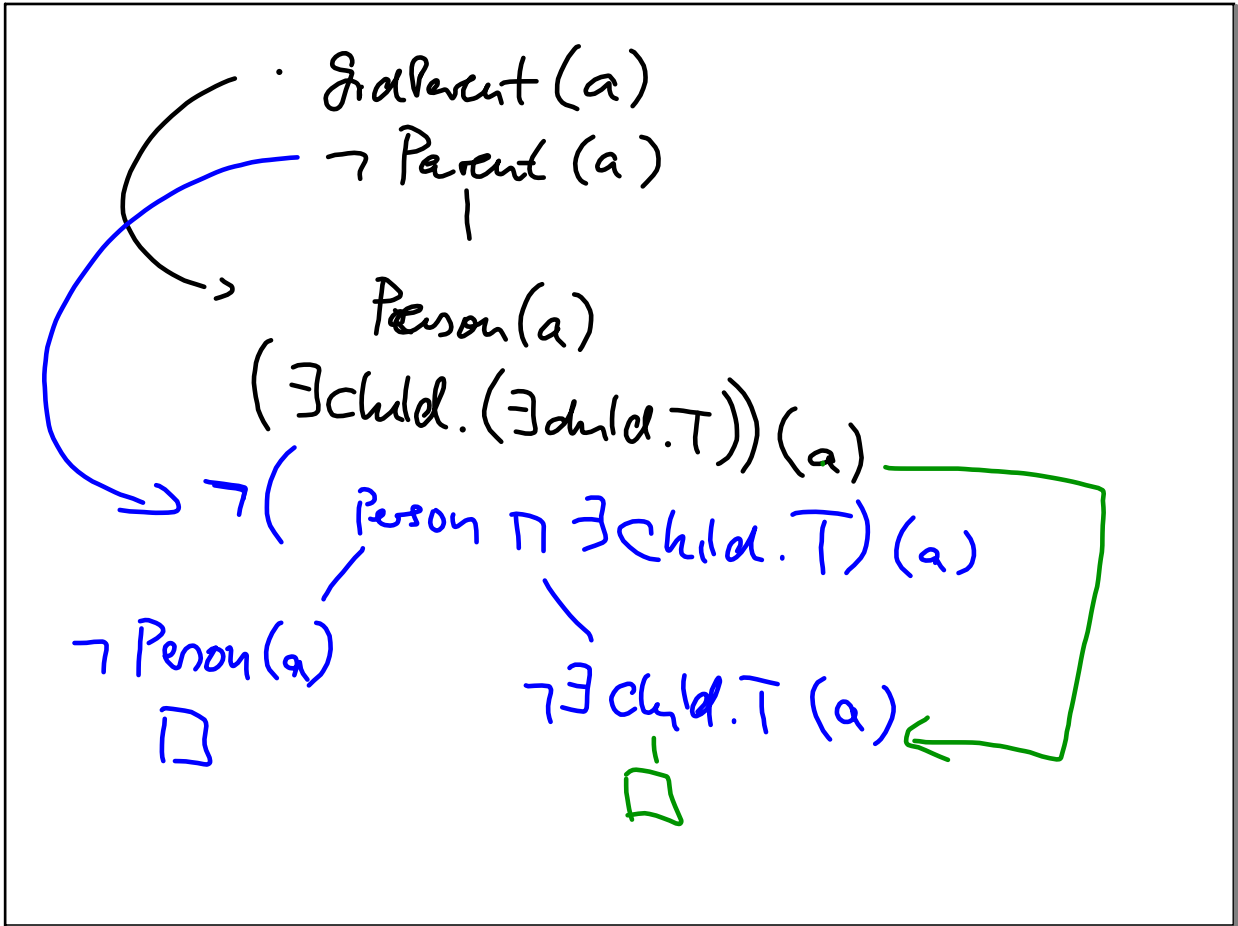 · GrdParent (a)
¬ Parent (a)
Person(a)
(∃child.(∃child.⊤))(a)
¬( Person ⊓ ∃child.⊤)(a)
¬ Person(a)
¬∃child.⊤ (a)